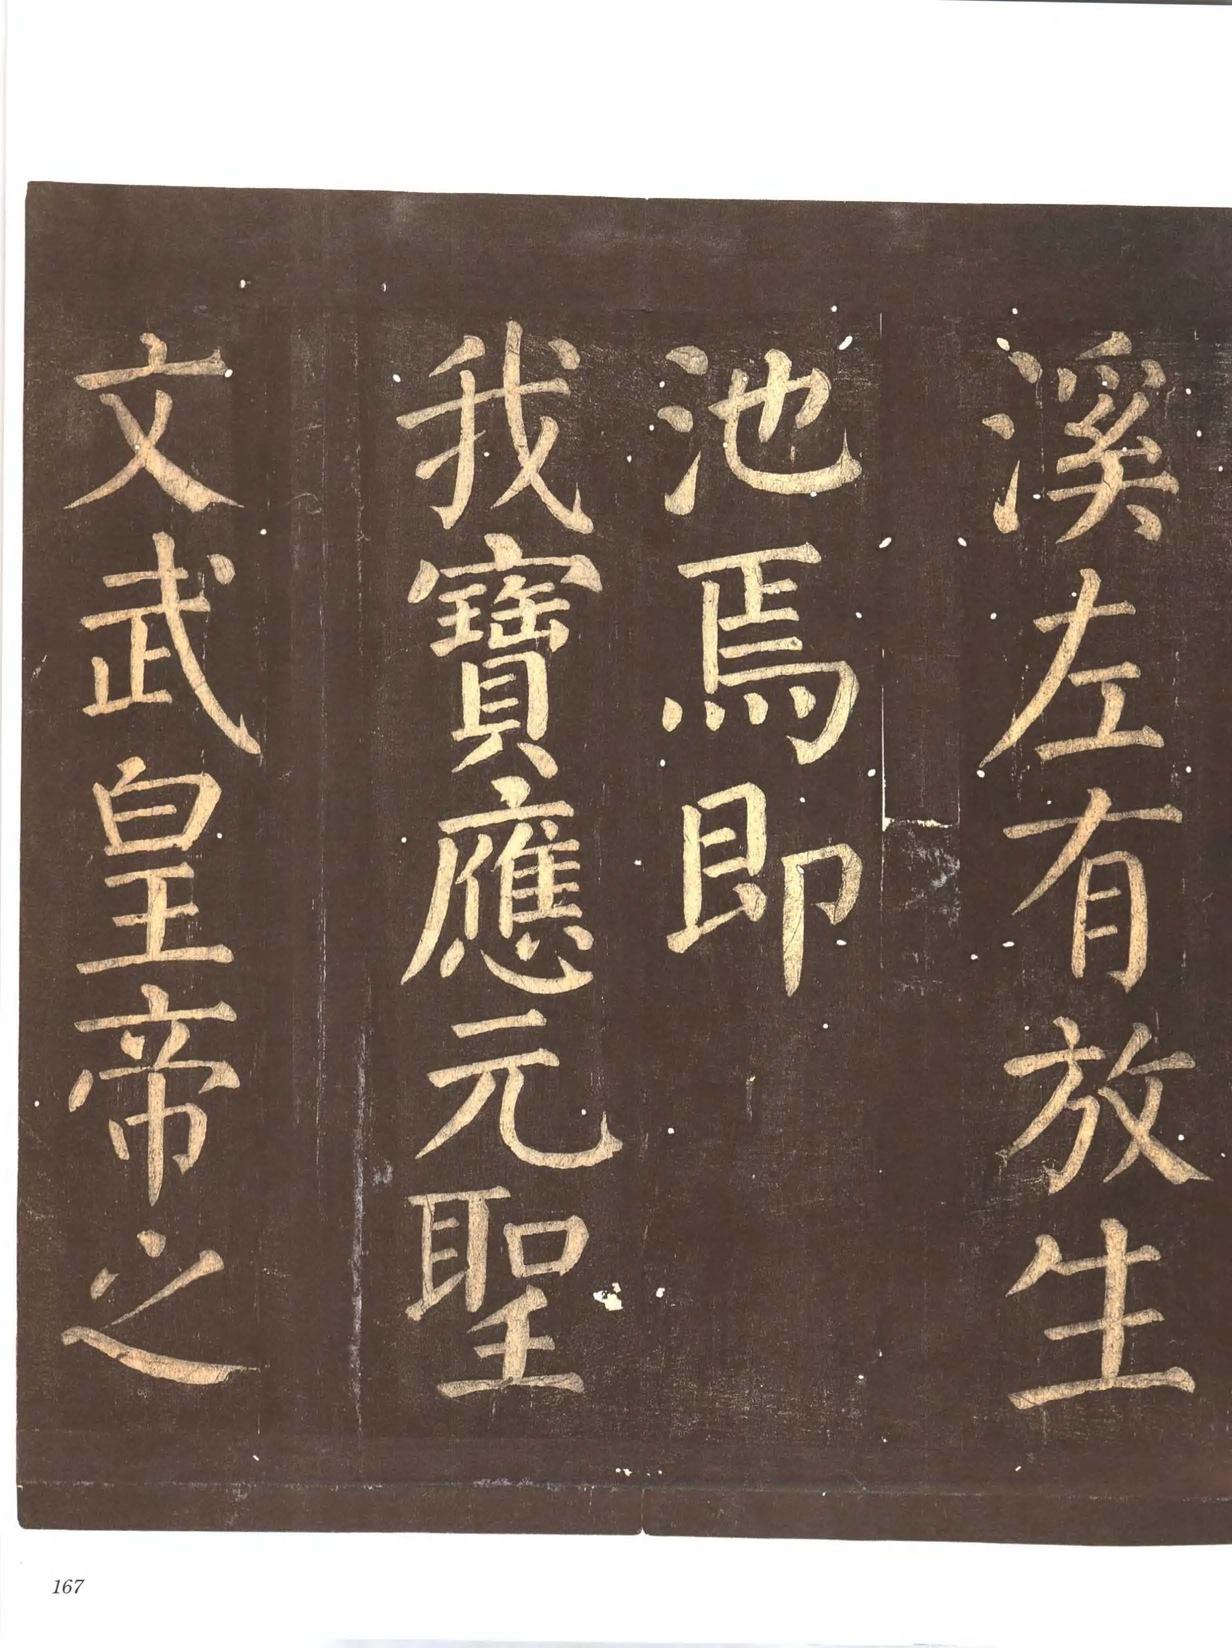 溪左有放生
池焉即
我寶應元聖
文武皇帝之
167